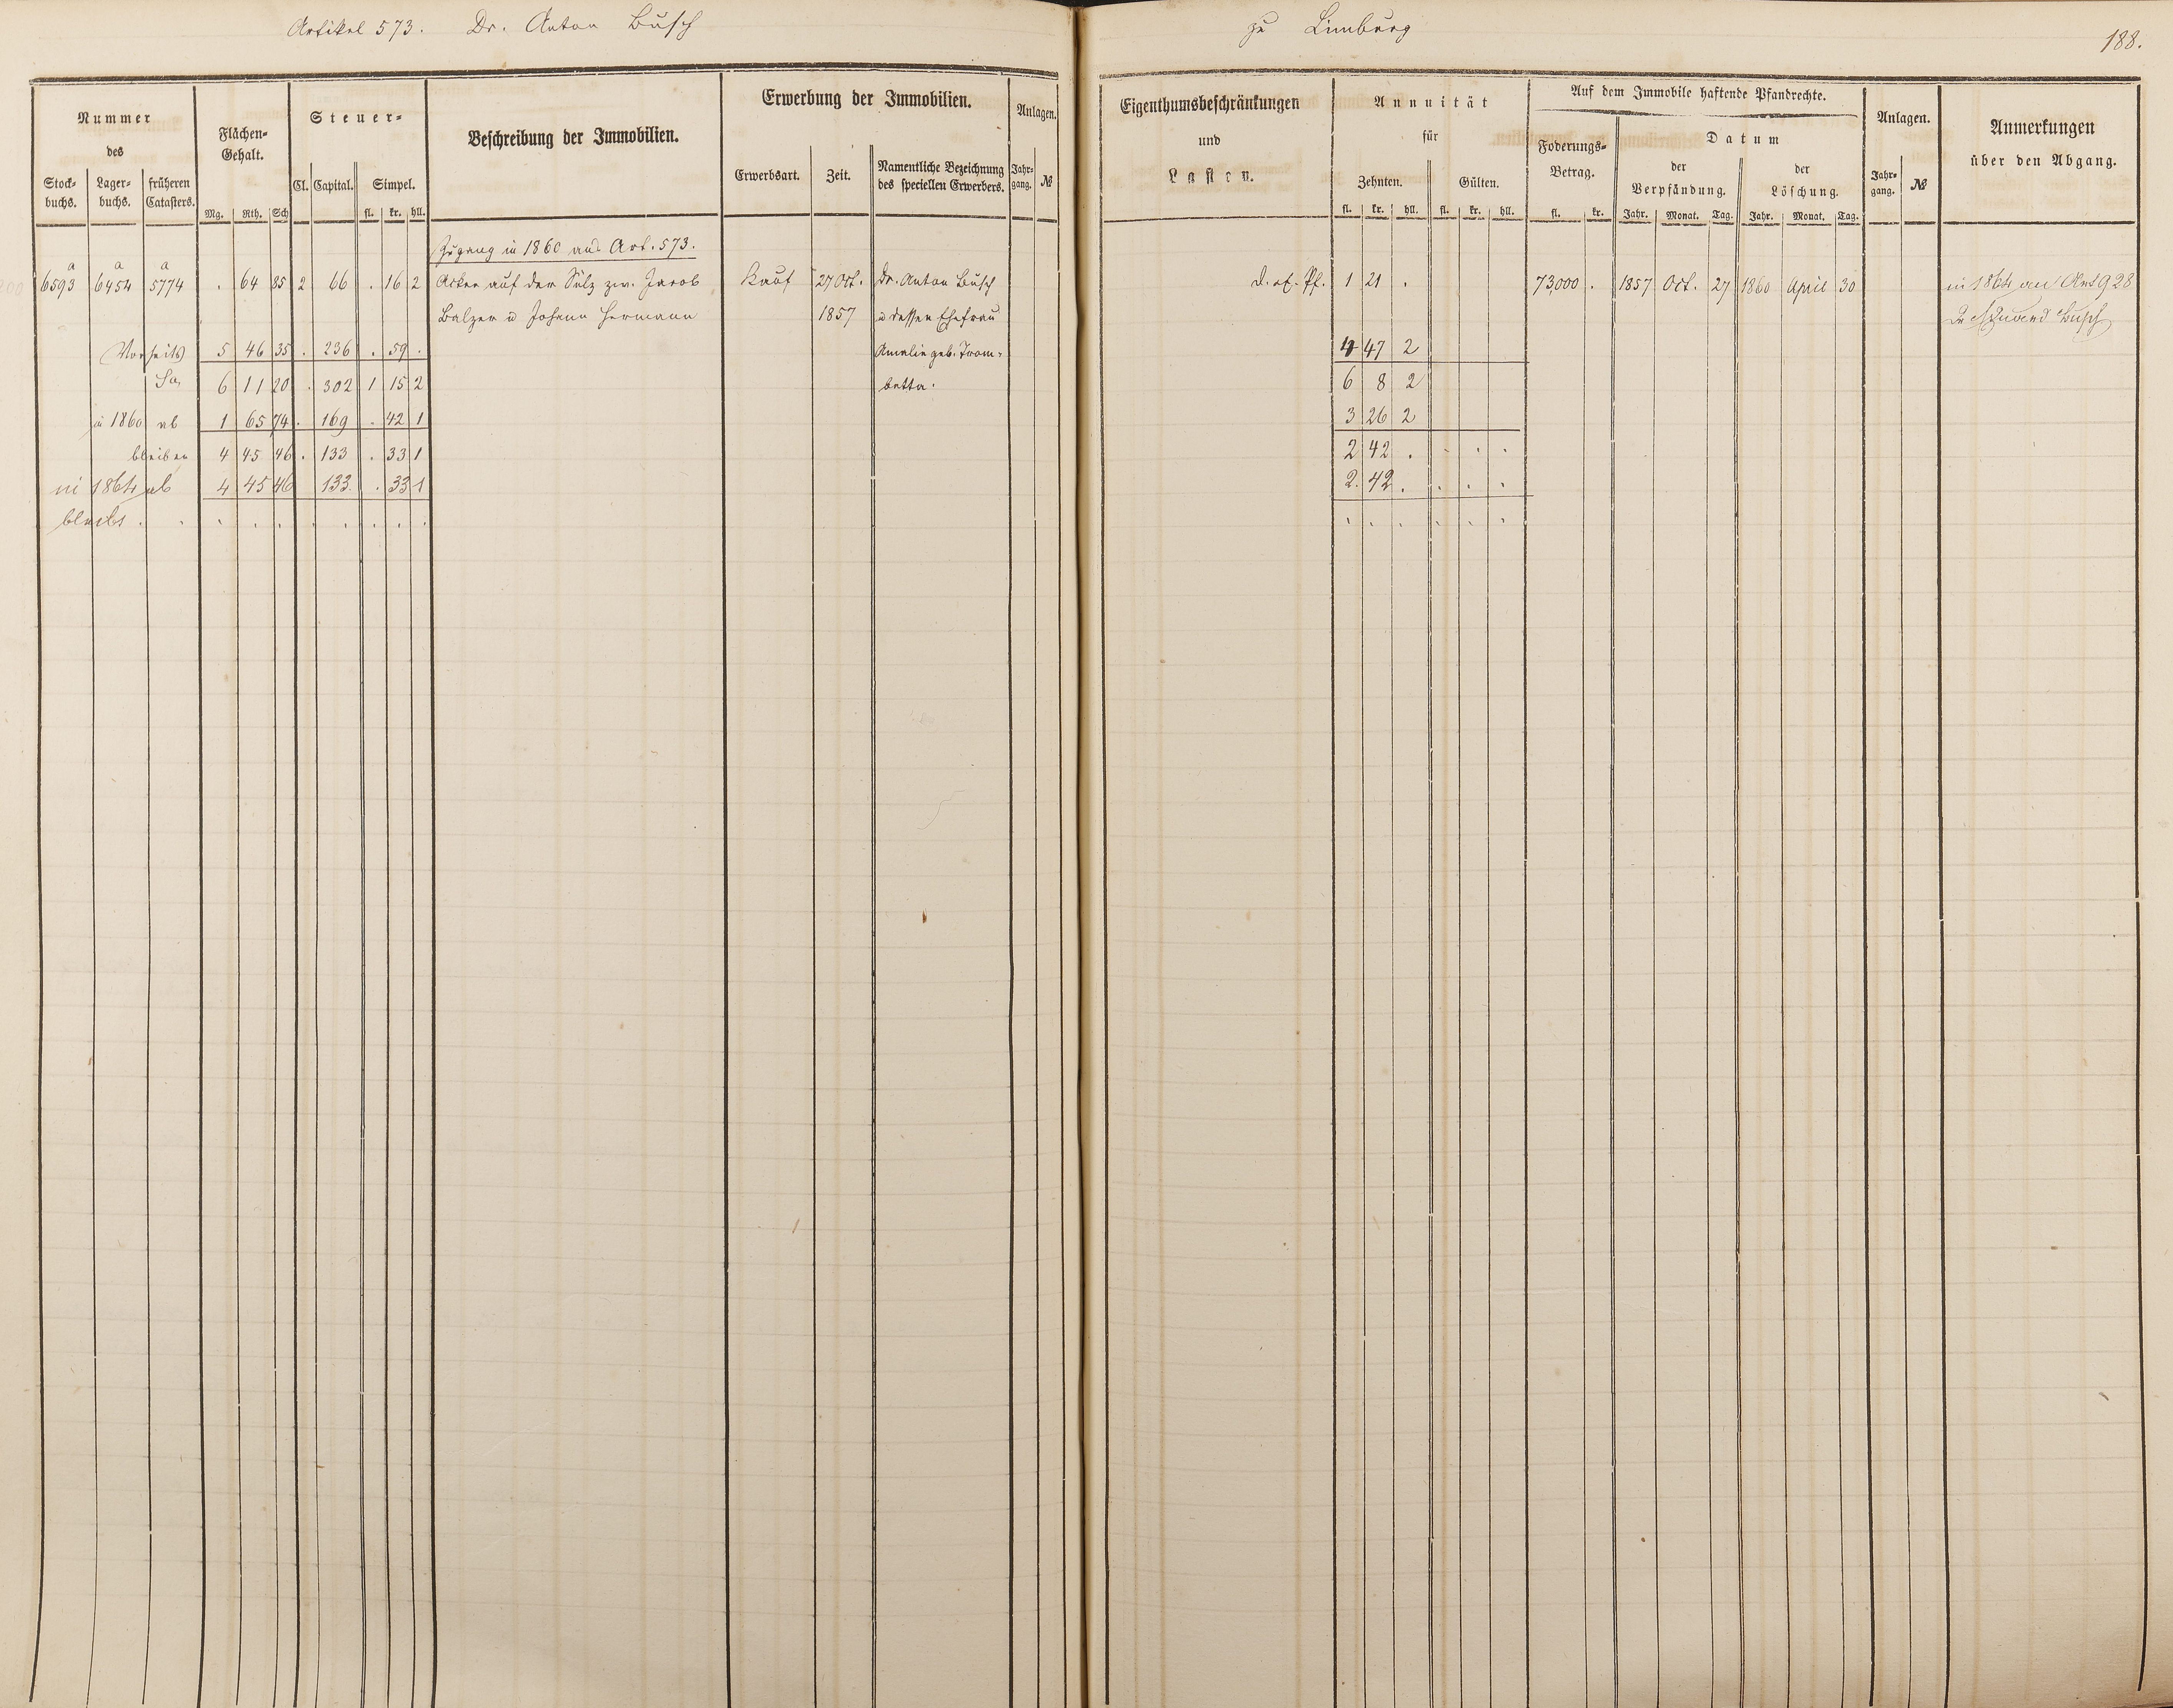 Artikel 573. Dr. Anton Busch zu Limburg
188.
Nummer
des
Stock-
buchs.
Lager-
buchs.
früheren
Catasters.
Flächen-
Gehalt.
Mg. Rth. Sch
Steuer-
Cl. Capital. Simpel.
fl. kr. hll.
Beschreibung der Immobilien.
Erwerbung der Immobilien.
Erwerbsart. Zeit. Namentliche Bezeichnung
des speciellen Erwerbers.
Anlagen.
Jahr-
gang. №
Eigenthumsbeschränkungen
und
Lasten.
Annuität
für
Zehnten. Gülten.
fl. kr. hll. fl. kr. hll.
Auf dem Immobile haftende Pfandrechte.
Foderungs-
Betrag.
fl. kr.
Datum
der
Verpfändung.
der
Löschung.
Jahr. Monat. Tag. Jahr. Monat. Tag.
Anlagen.
Jahr-
gang. №
Anmerkungen
über den Abgang.
Zugang in 1860 aus Art. 573.
a a a
6593 6454 5774 . 64 85 2 66 . 16 2 Acker auf der Sülz zw. Jacob Kauf 27 Oct. Dr. Anton Busch 1 21 . 73,000 . 1857 Oct. 27 1860 April 30 in 1864 an Art 928
Balzer u Johann Hermann 1857 u dessen Ehefrau Busch
Vorseits 5 46 35 . 236 . 59 . Amalie geb. Trom- 4 47 2
Sa 6 11 20 . 302 1 15 2 betta. 6 8 2
in 1860 ab 1 65 74 . 169 . 42 1 3 26 2
bleiben 4 45 46 . 133 . 33 1 2 42 . . . .
in 1864 ab 4 45 46 133 . 33 1 2. 42 . . . .
bleibt . . . . . . . . . . . . . . . .